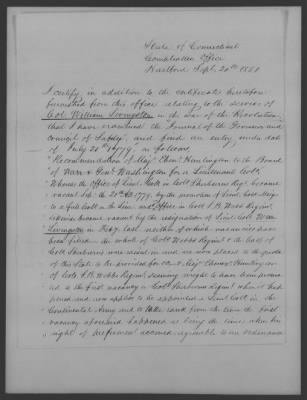 State of Connecticut
Comptroller Office
Hartford Sept. 20th 1851
I certify in addition to the certificate heretofore
furnished from this office relating to the services of
Col. William Livingston in the war of the Revolution
that I have examined the Journal of the Governor and
council of Safety, and find an entry under date
of July 20th 1779, as follows,
"Recommendation of Maj. Huntington to the Board
of War & Genl Washington for a Lieutenant Colo.
Whereas the office of Lieut. Colo. in Colo.
vacant 1779, by the promotion of Lieut. Colo.
to a full Colo. in the line and office in Colo. S. B. Webbs Regimt.
likewise became vacant by the resignation of Lieut. Colo. Wm
Livingston in Feby. last, neither of which vacancies have
been filled, the whole of Colo. Webbs Regimt. & the half of
Colo. were raised in and are now placed to the quota
of this State to be provided for &
of Colo. S. B. Webbs Regiment seeming ought to have been promo-
ted to the first vacancy in Colo. Regiment when it hap-
pened and now applies to be appointed a Lieut. Colo. in the
Continental Army and to take rank from the time the
vacancy aforesaid happened as being the time when his
right of preferment accrued agreeable to an ordinance